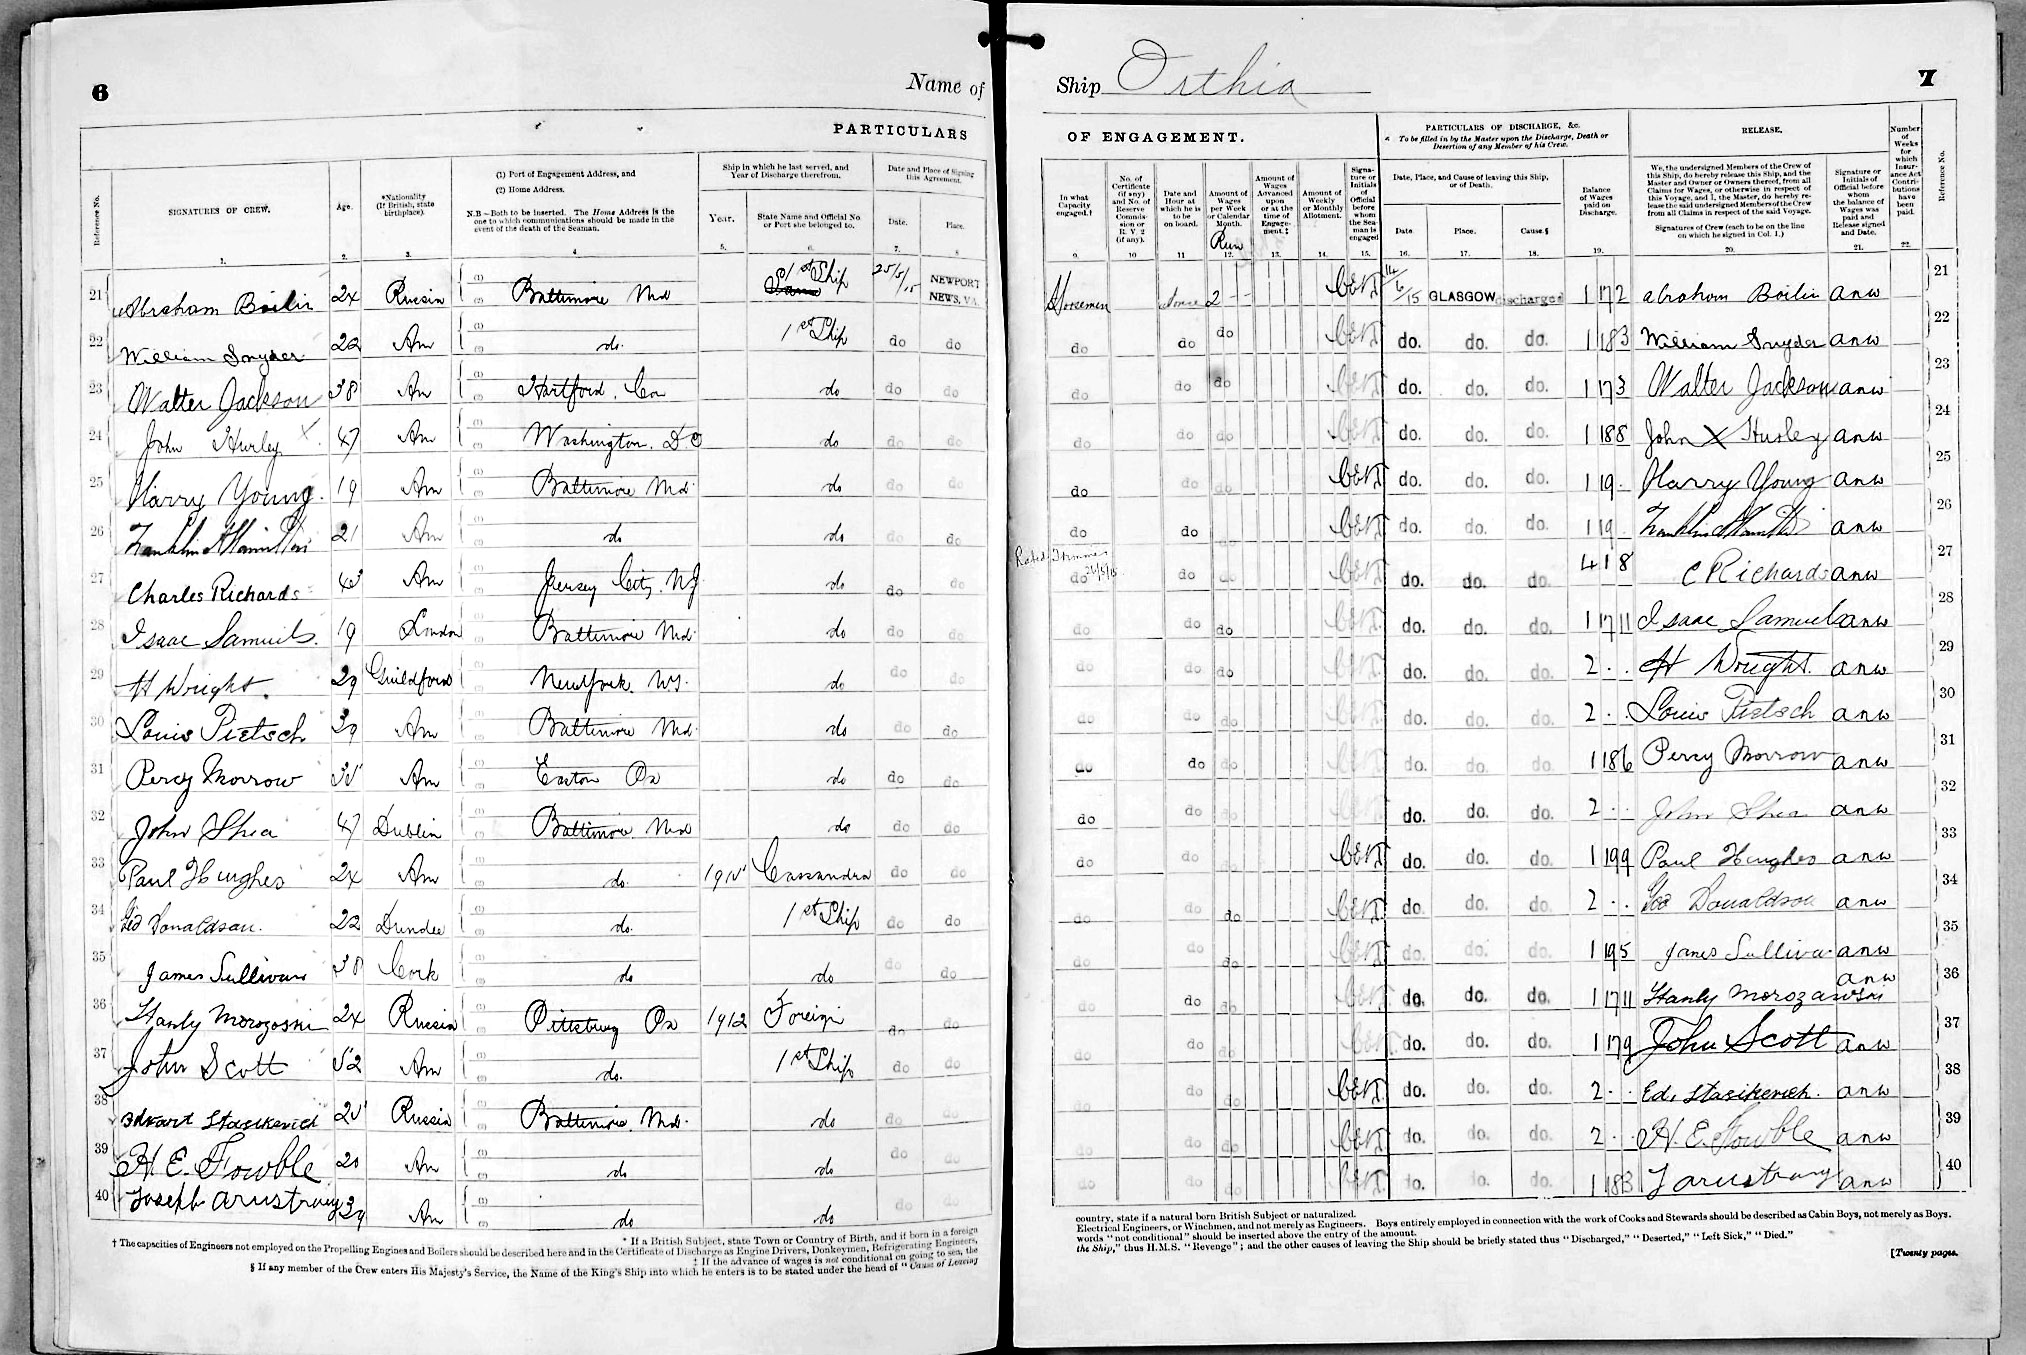 6
Name of
PARTICULARS
Reference No.
SIGNATURES OF CREW.
Age.
*Nationality (If British, state birthplace).
(1) Port of Engagement Address, and
(2) Home Address.
N.B.—Both to be inserted. The Home Address is the one to which communications should be made in the event of the death of the Seaman.
Ship in which he last served, and Year of Discharge therefrom.
Year.
State Name and Official No. or Port she belonged to.
Date and Place of Signing this Agreement.
Date.
Place.
1. 2. 3. 4 5. 6. 7. 8
21 Abraham Boilin 24 Russia (1) (2) Baltimore Md 1st Ship 25/5/15 NEWPORT NEWS, VA.
22 William Snyder 22 Am (1) (2) do. 1st Ship do do
23 Walter Jackson 38 Am (1) (2) Hartford. Con do do do
24 John Hurley X 47 Am (1) (2) Washington. D.C do do do
25 Harry Young. 19 Am (1) (2) Baltimore Md. do do do
26 Franklin Hamilton 21 Am (1) (2) do do do do
27 Charles Richards Am (1) (2) Jersey City. NJ. do do do
28 Isaac Samuels. 19 London (1) (2) Baltimore Md. do do do
29 H Wright. 29 Guildford (1) (2) New York. NY. do do do
30 Louis Pietsch 39 Am (1) (2) Baltimore Md. do do do
31 Percy Morrow 35 Am (1) (2) Easton Pa do do do
32 John Shea 47 Dublin (1) (2) Baltimore. Md do do do
33 Paul Hughes 24 Am (1) (2) do. 1915 Cassandra do do
34 Geo Donaldson. 22 Dundee (1) (2) do. 1st Ship do do
35 James Sullivan 38 Cork (1) (2) do do do do
36 Stanly Morozoski 24 Russia (1) (2) Pittsburg Pa 1912 Foreign do do
37 John Scott 52 Am (1) (2) do. 1st Ship do do
38 Stasikevich 25 Russia (1) (2) Baltimore. Md. do do do
39 H. E. Fowble 20 Am (1) (2) do do do do
40 Joseph Armstrong 39 Am (1) (2) do do do do
* If a British Subject, state Town or Country of Birth, and if born in a foreign
† The capacities of Engineers not employed on the Propelling Engines and Boilers should be described here and in the Certificate of Discharge as Engine Drivers, Donkeymen, Refrigerating Engineers,
‡ If the advance of wages is not conditional on going to sea, the
§ If any member of the Crew enters His Majesty's Service, the Name of the King's Ship into which he enters is to be stated under the head of "Cause of Leaving
Ship Orthia
7
OF ENGAGEMENT.
PARTICULARS OF DISCHARGE, &c.
To be filled in by the Master upon the Discharge, Death or Desertion of any Member of his Crew.
RELEASE.
In what Capacity engaged.†
No. of Certificate (if any) and No. of Reserve Commission or R.V. 2 (if any).
Date and Hour at which he is to be on board.
Amount of Wages per Week or Calendar Month.
Run
Amount of Wages Advanced upon or at the time of Engagement.‡
Amount of Weekly or Monthly Allotment.
Signature or Initials of Official before whom the Seaman is engaged
Date, Place, and Cause of leaving this Ship, or of Death.
Date
Place.
Cause.§
Balance of Wages paid on Discharge.
We, the undersigned Members of the Crew of this Ship, do hereby release this Ship, and the Master and Owner or Owners thereof, from all Claims for Wages, or otherwise in respect of this Voyage, and I, the Master, do hereby release the said undersigned Members of the Crew from all Claims in respect of the said Voyage.
Signatures of Crew (each to be on the line on which he signed in Col. 1.)
Signature or Initials of Official before whom the balance of Wages was paid and Release signed and Date.
Number of Weeks for which Insurance Act Contributions have been paid.
Reference No.
9. 10 11 12. 13. 14. 15. 16. 17. 18. 19. 20. 21. 22.
Horsemen 2 14/6/15 GLASGOW discharged 1 17 2 abraham Boilin anw 21
do do do do. do. do. 1 18 3 William Snyder anw 22
do do do do. do. do. 1 17 3 Walter Jackson anw 23
do do do do. do. do. 1 18 8 John X Hurley anw 24
do do do do. do. do. 1 19 . Harry Young anw 25
do do do do. do. do. 1 19 . Franklin Hamilton anw 26
Rated Trimmer 26/5/15
do do do do. do. do. 4 1 8 C Richards anw 27
do do do do. do. do. 1 17 11 Isaac Samuels anw 28
do do do do. do. do. 2 . . H Wright. anw 29
do do do do. do. do. 2 . . Louis Pietsch anw 30
do do do do. do. do. 1 18 6 Percy Morrow anw 31
do do do do. do. do. 2 . . John Shea anw 32
do do do do. do. do. 1 19 9 Paul Hughes anw 33
do do do do. do. do. 2 . . Geo Donaldson anw 34
do do do do. do. do. 1 19 5 James Sullivan anw 35
do do do do. do. do. 1 17 11 Stanly Morozawski anw 36
do do do do. do. do. 1 17 9 John Scott anw 37
do do do do. do. do. 2 . . Ed. Stasikevich. anw 38
do do do do. do. do. 2 . . H. E. Fowble anw 39
do do do do. do. do. 1 18 3 J armstrong anw 40
country, state if a natural born British Subject or naturalized.
Electrical Engineers, or Winchmen, and not merely as Engineers. Boys entirely employed in connection with the work of Cooks and Stewards should be described as Cabin Boys, not merely as Boys.
words "not conditional" should be inserted above the entry of the amount.
the Ship," thus H.M.S. "Revenge"; and the other causes of leaving the Ship should be briefly stated thus "Discharged," "Deserted," "Left Sick," "Died."
[Twenty pages.